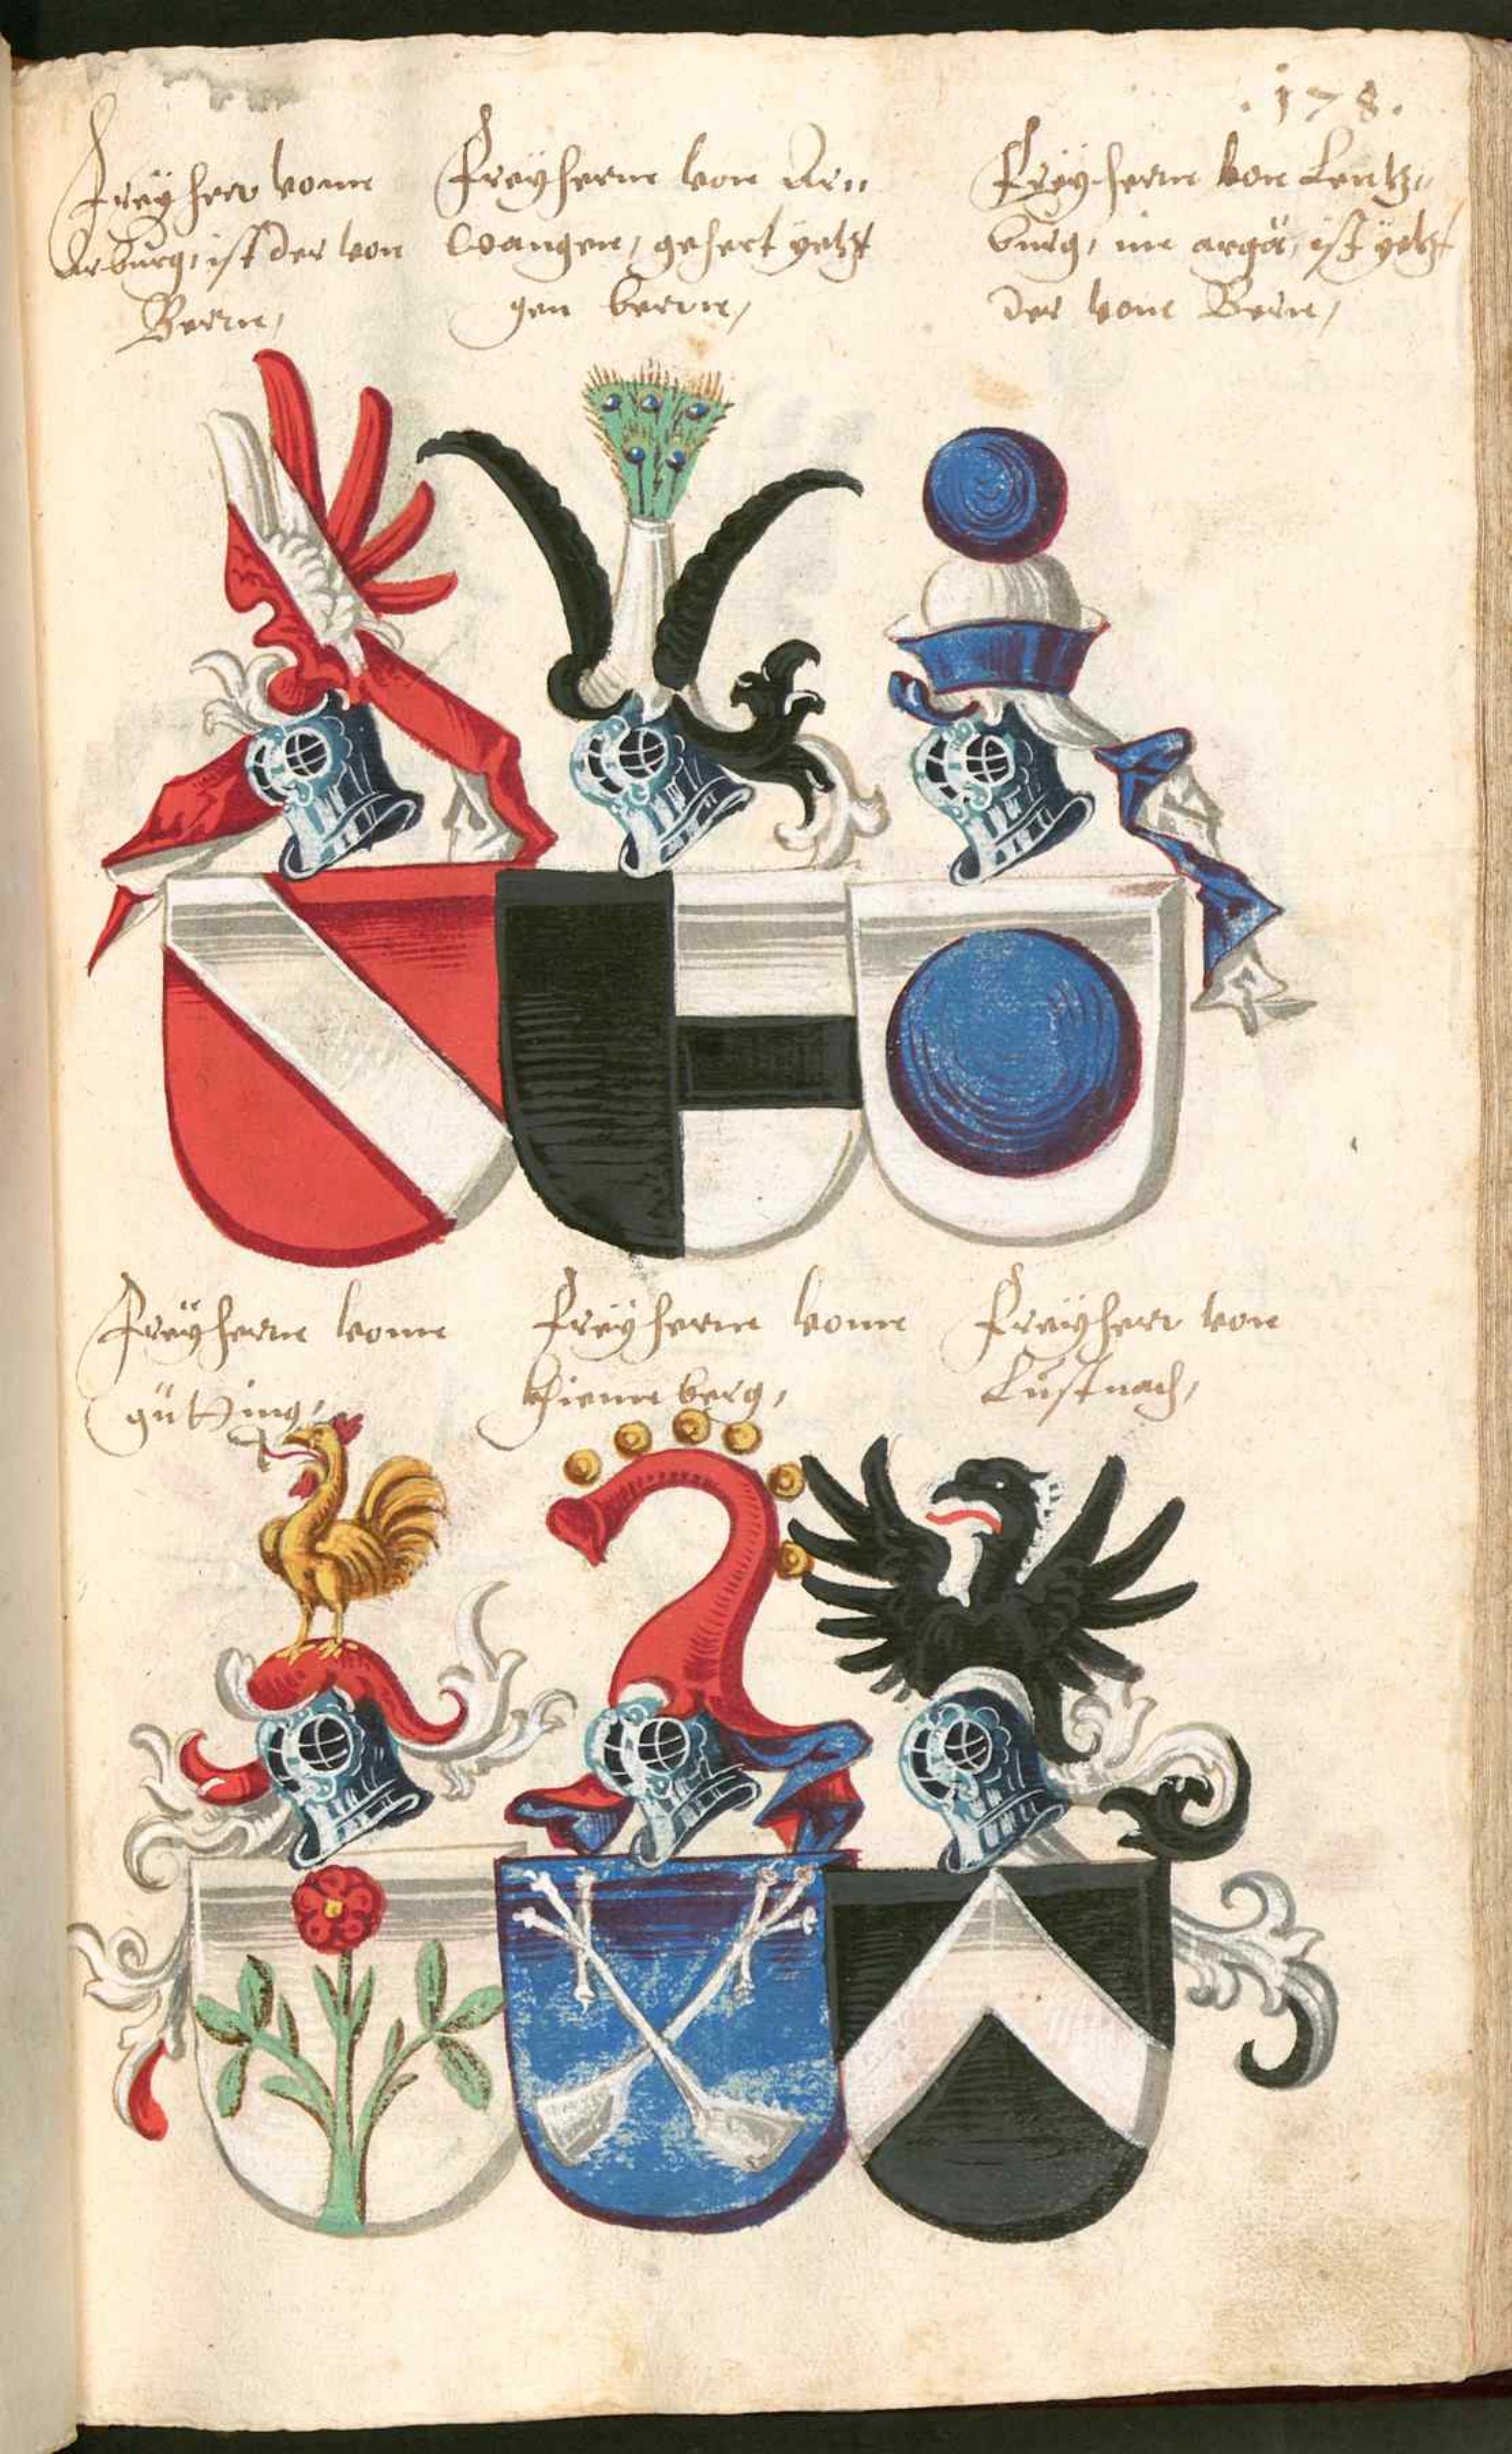 .178.
Freÿherr vonn
Arburg, ist der von
Bern,
Freÿherrn von Ar„
wangen, gehert yetzt
gen bern,
Freÿherrn von Lentz„
burg, im argöẅ, ist ÿetzt
der von Bern,
Freÿherrn vonn
gütting,
Freÿherrn vonn
Kienneberg,
Freÿherr von
Lustnach,